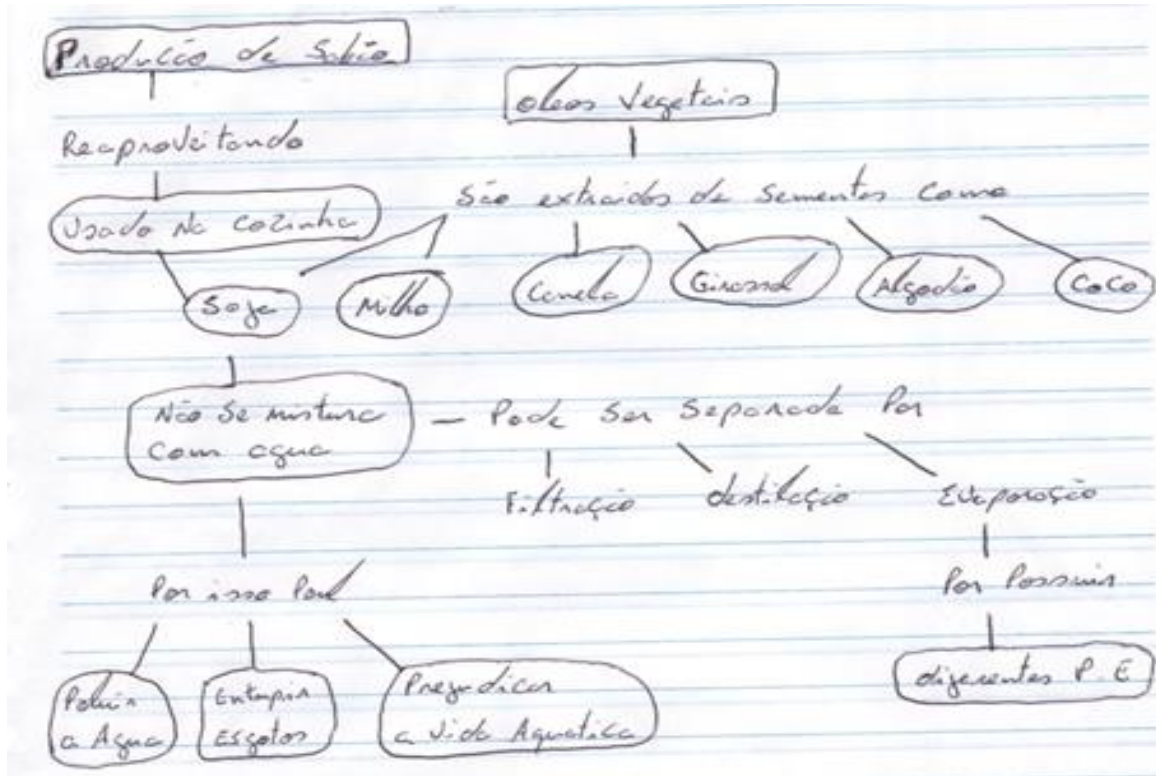 Produção de Sabão
óleos Vegetais
Reaproveitando
São extraidos de Sementes Como
Usado Na Cozinha
Soja
Milho
Canela
Girassol
Algodão
CoCo
Não Se mistura
Com agua
Pode Ser Separada Por
Filtração
destilação
Evaporação
Por isso
Por Possuir
Poluir
a Agua
Entupir
Esgotos
Prejudicar
a Vida Aquatica
diferentes P.E